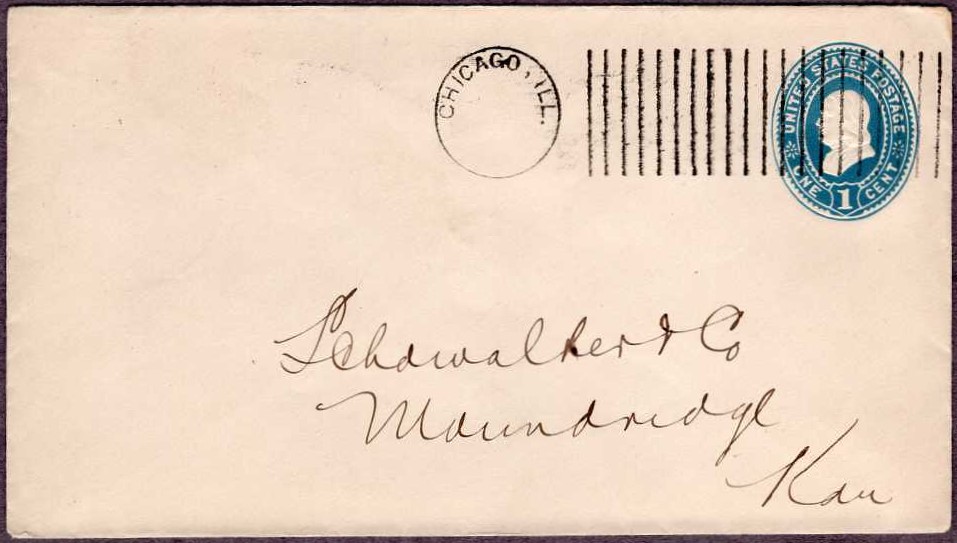 CHICAGO, ILL.
UNITED STATES POSTAGE
ONE 1 CENT
Schowalter & Co
Moundridge
Kan